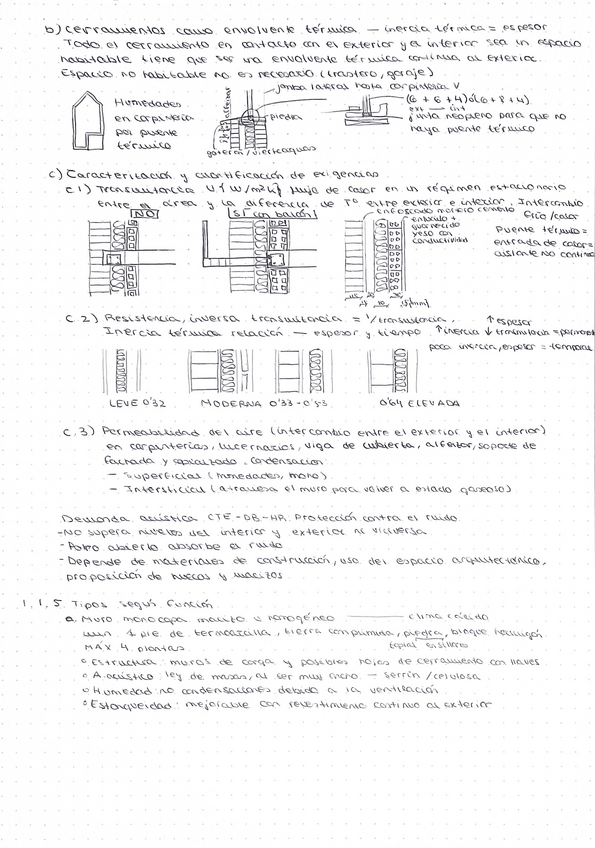 b) Cerramientos como envolvente térmica — inercia térmica = espesor
Todo el cerramiento en contacto con el exterior y el interior sea un espacio
habitable tiene que ser una envolvente térmica continua al exterior.
Espacio no habitable no es necesario (trastero, garaje)
jamba lateral hasta carpintería V
alfeizar
Humedades
en carpintería
por puente
térmico
piedra
(6 + 6 + 4) ó (6 + 8 + 4)
ext int
junta neopreno para que no
haya puente térmico
goterón / vierteaguas
c) Caracterización y cuantificación de exigencias
c.1) Transmitancia U {W/m²k} flujo de calor en un régimen estacionario
entre el área y la diferencia de Tº entre exterior e interior. Intercambio
frío/calor
NO
SÍ con balcón
enfoscado mortero cemento
enlucido +
guarnecido
yeso con
conductividad
Puente térmico =
entrada de calor =
aislante no continuo
(mm)
c.2) Resistencia, inversa transmitancia = 1/transmitancia.
↑ espesor
Inercia térmica relación — espesor y tiempo
↑ inercia ↓ transmitancia = permanente
poca inercia, espesor = temporal
LEVE 0'32
MODERNA 0'33 - 0'53
0'64 ELEVADA
c.3) Permeabilidad del aire (intercambio entre el exterior y el interior)
en carpinterías, lucernarios, viga de cubierta, alfeizar, soporte de
fachada y capialzado. Condensación:
— Superficial (humedades, moho)
— Intersticial (atraviesa el muro para volver a estado gaseoso)
Demanda acústica CTE-DB-HR. Protección contra el ruido.
- No supera niveles del interior y exterior ni viceversa
- Patio abierto absorbe el ruido
- Depende de materiales de construcción, uso del espacio arquitectónico,
proposición de huecos y macizos
1.1.5. Tipos según función
a. Muro monocapa macizo u homogéneo ——— clima cálido
mín. 1 pie de termoarcilla, tierra comprimida, piedra, bloque hormigón
MÁX 4 plantas.
tapial sillares
° Estructura: muros de carga y posibles hojas de cerramiento con llaves
° A. acústico: ley de masas, al ser muy ancho — serrín / celulosa
° Humedad: no condensaciones debido a la ventilación
° Estanqueidad: mejorable con revestimiento continuo al exterior